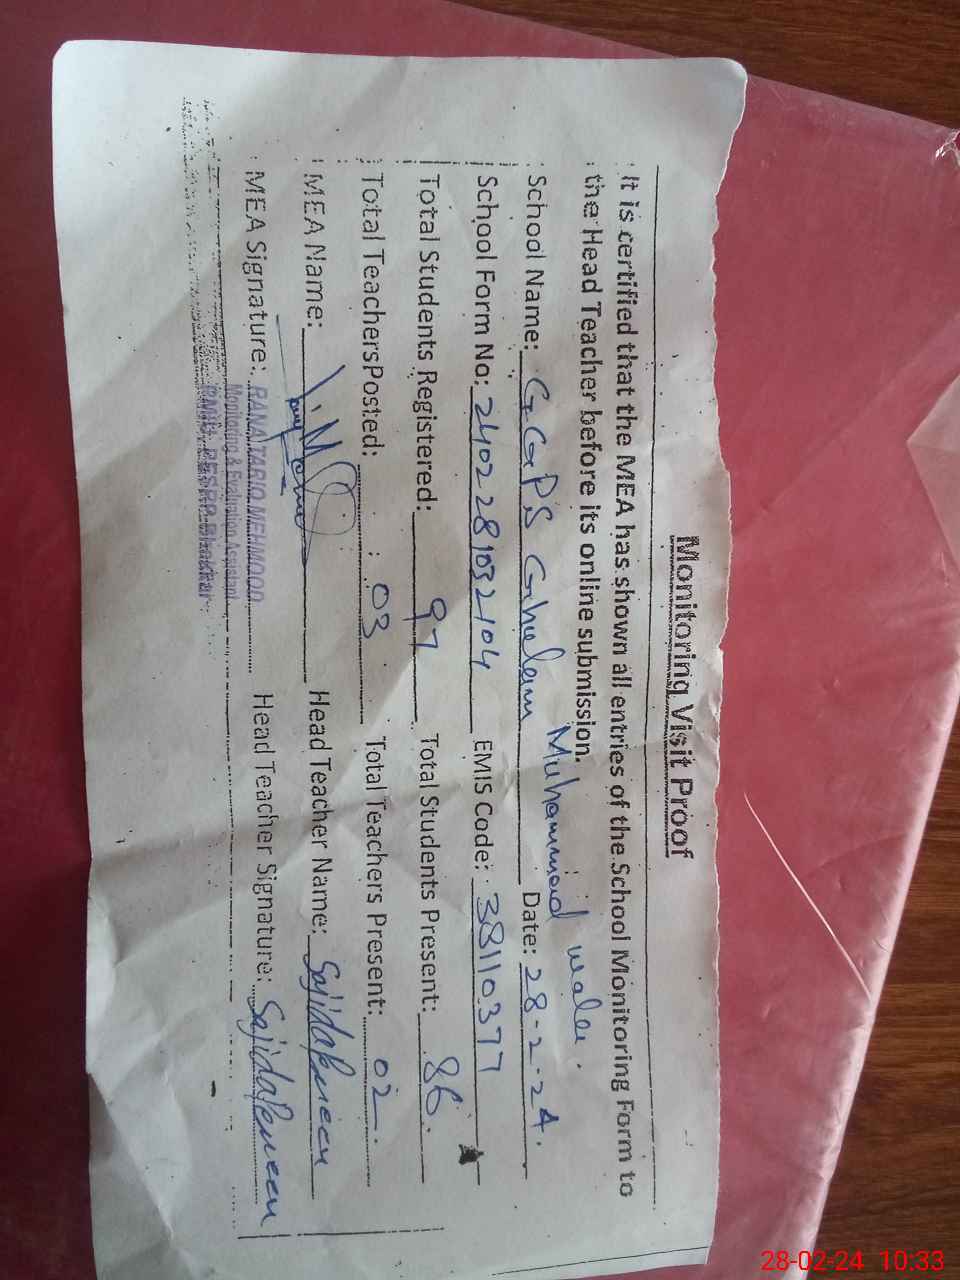 Monitoring Visit Proof
It is certified that the MEA has shown all entries of the School Monitoring Form to
the Head Teacher before its online submission.
School Name: GGPS Ghulam Muhammad wala. Date: 28-2-24.
School Form No: 2402281032104 EMIS Code: 38110377
Total Students Registered: 97 Total Students Present: 86.
Total TeachersPosted: 03 Total Teachers Present: 02.
MEA Name: Head Teacher Name: Sajida Parveen
MEA Signature: RANA TARIQ MEHMOOD Head Teacher Signature: Sajida Parveen
Monitoring & Evaluation Assistant
PMIU-PESRP Bhakkar
28-02-24 10:33